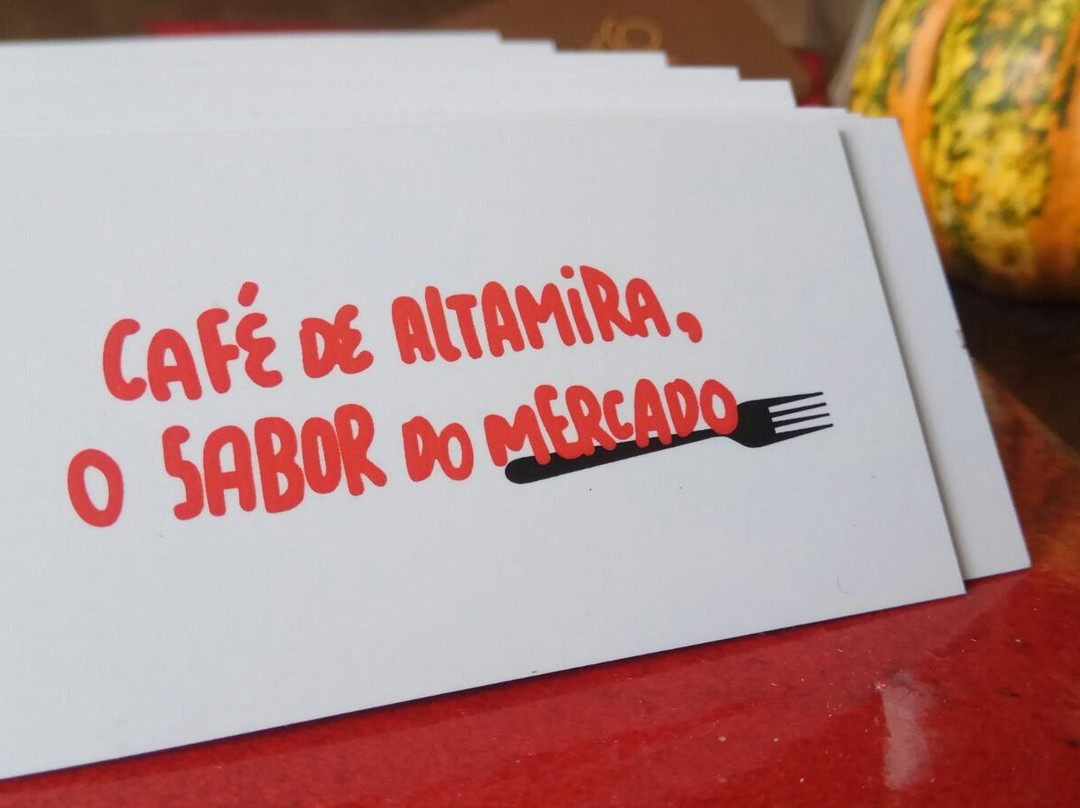 CAFÉ DE ALTAMiRA,
O SABOR DO MERCADO